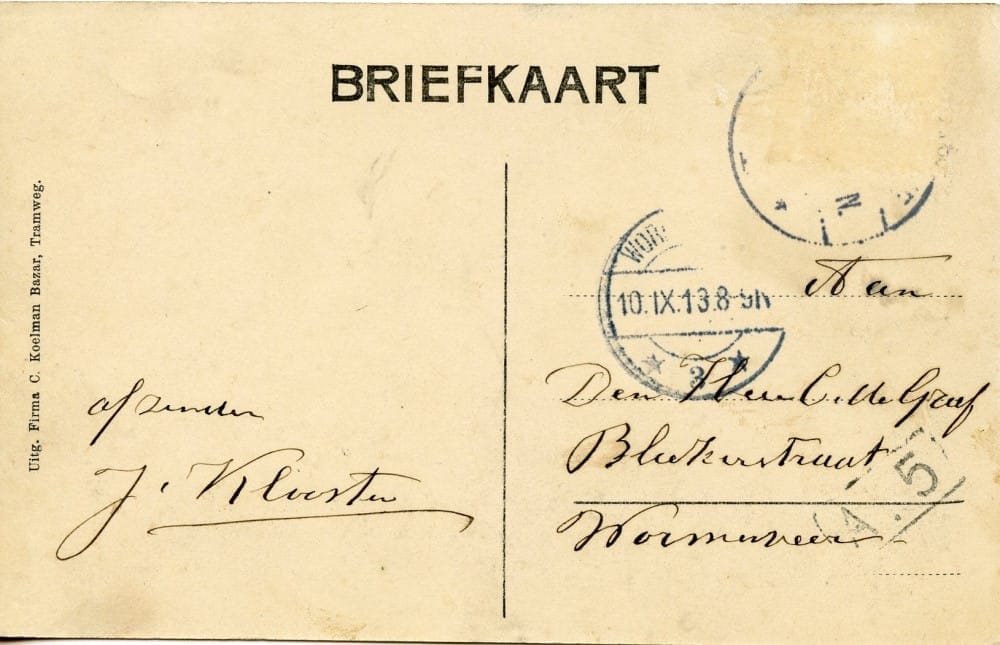 BRIEFKAART
Uitg. Firma C. Koelman Bazar, Tramweg.
afzender
J. Klooster
WOR
10.IX.13.8-9N
3
N.
Aan
Den Heer C. de Graaf
Blekerstraat
Wormerveer
A.5